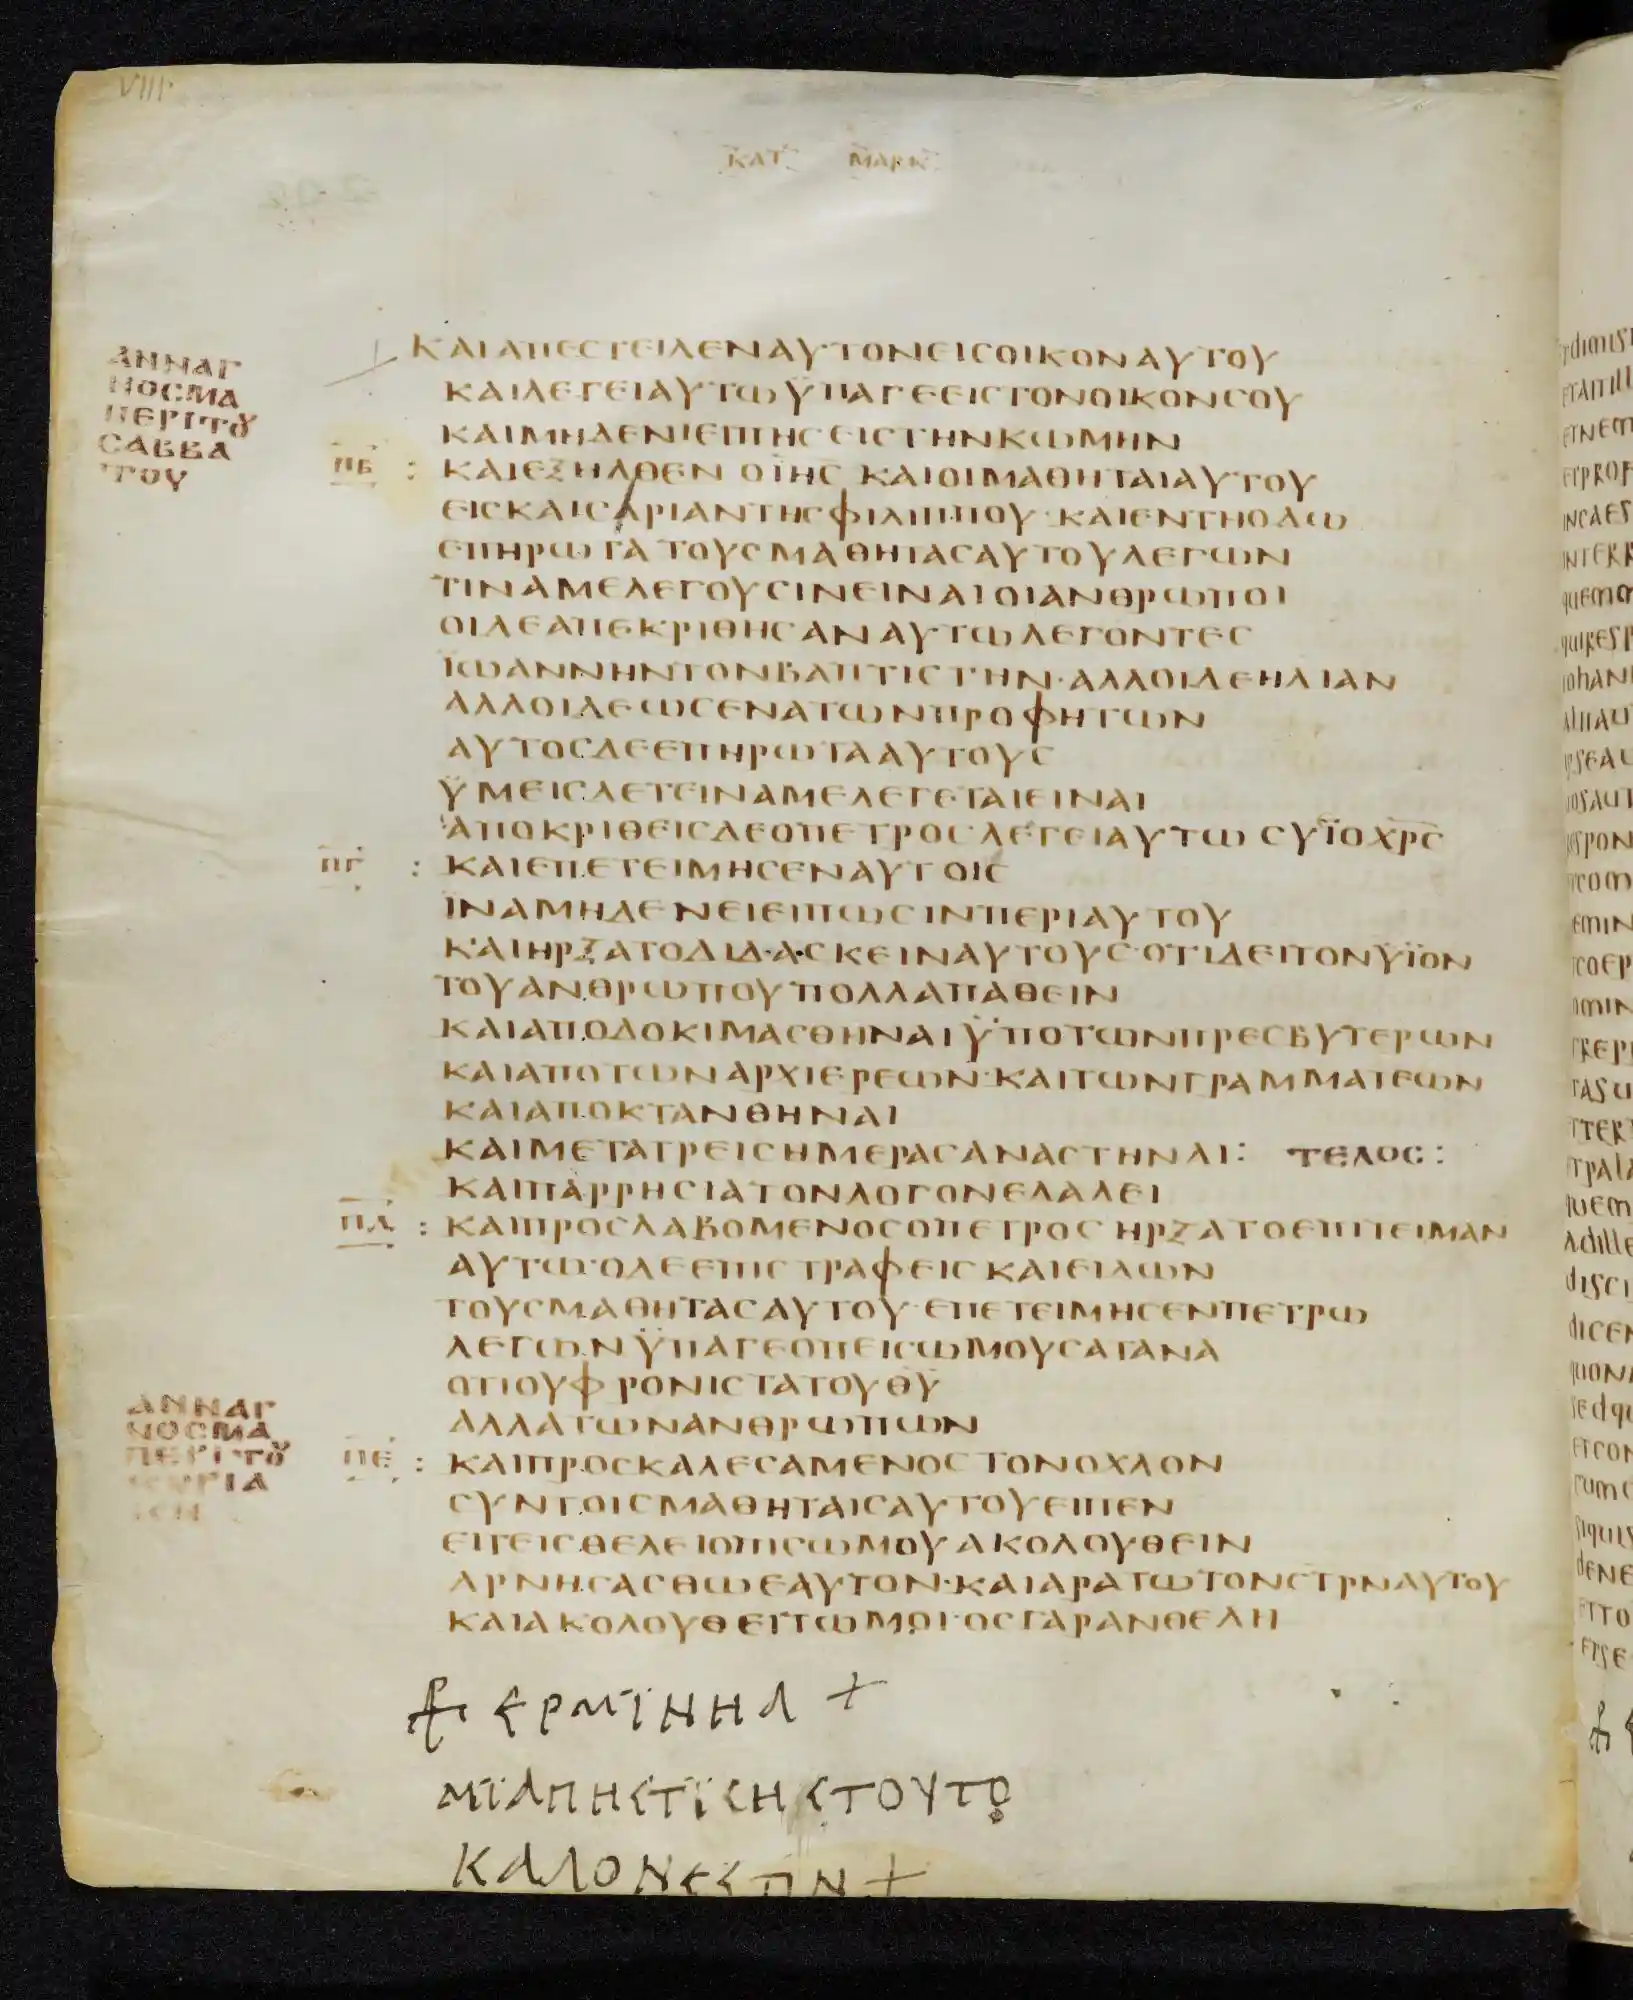 VIII
ΚΑΤ ΜΑΡΚ
ΑΝΝΑΓ
ΝΟϹΜΑ
ΠΕΡΙΤȣ
ϹΑΒΒΑ
ΤΟΥ
ΚΑΙΑΠΕϹΤΕΙΛΕΝΑΥΤΟΝΕΙϹΟΙΚΟΝΑΥΤΟΥ
ΚΑΙΛΕΓΕΙΑΥΤΩΫΠΑΓΕΕΙϹΤΟΝΟΙΚΟΝϹΟΥ
ΚΑΙΜΗΔΕΝΙΕΙΠΗϹΕΙϹΤΗΝΚΩΜΗΝ
ΠΒ : ΚΑΙΕΞΗΛΘΕΝ Ο ΙΗϹ ΚΑΙΟΙΜΑΘΗΤΑΙΑΥΤΟΥ
ΕΙϹΚΑΙϹΑΡΙΑΝΤΗϹΦΙΛΙΠΠΟΥ·ΚΑΙΕΝΤΗΟΔΩ
ΕΠΗΡΩΤΑ ΤΟΥϹΜΑΘΗΤΑϹΑΥΤΟΥΛΕΓΩΝ
ΤΙΝΑΜΕΛΕΓΟΥϹΙΝΕΙΝΑΙΟΙΑΝΘΡΩΠΟΙ
ΟΙΔΕΑΠΕΚΡΙΘΗϹΑΝΑΥΤΩΛΕΓΟΝΤΕϹ
ΪΩΑΝΝΗΝΤΟΝΒΑΠΤΙϹΤΗΝ·ΑΛΛΟΙΔΕΗΛΙΑΝ
ΑΛΛΟΙΔΕΩϹΕΝΑΤΩΝΠΡΟΦΗΤΩΝ
ΑΥΤΟϹΔΕΕΠΗΡΩΤΑΑΥΤΟΥϹ
ΫΜΕΙϹΔΕΤΕΙΝΑΜΕΛΕΓΕΤΑΙΕΙΝΑΙ
ΑΠΟΚΡΙΘΕΙϹΔΕΟΠΕΤΡΟϹΛΕΓΕΙΑΥΤΩ ϹΥΪΟΧΡϹ
ΠΓ : ΚΑΙΕΠΕΤΕΙΜΗϹΕΝΑΥΤΟΙϹ
ΪΝΑΜΗΔΕΝΕΙΕΙΠΩϹΙΝΠΕΡΙΑΥΤΟΥ
ΚΑΙΗΡΞΑΤΟΔΙΔ·Α·ϹΚΕΙΝΑΥΤΟΥϹ·ΟΤΙΔΕΙΤΟΝΥΪΟΝ
ΤΟΥΑΝΘΡΩΠΟΥΠΟΛΛΑΠΑΘΕΙΝ
ΚΑΙΑΠΟΔΟΚΙΜΑϹΘΗΝΑΙΫΠΟΤΩΝΠΡΕϹΒΥΤΕΡΩΝ
ΚΑΙΑΠΟΤΩΝΑΡΧΙΕΡΕΩΝ·ΚΑΙΤΩΝΓΡΑΜΜΑΤΕΩΝ
ΚΑΙΑΠΟΚΤΑΝΘΗΝΑΙ
ΚΑΙΜΕΤΑΤΡΕΙϹΗΜΕΡΑϹΑΝΑϹΤΗΝΑΙ: ΤΕΛΟϹ:
ΚΑΙΠΑΡΡΗϹΙΑΤΟΝΛΟΓΟΝΕΛΑΛΕΙ
ΠΔ : ΚΑΙΠΡΟϹΛΑΒΟΜΕΝΟϹΟΠΕΤΡΟϹ ΗΡΞΑΤΟΕΠΙΤΕΙΜΑΝ
ΑΥΤΩ·ΟΔΕΕΠΙϹΤΡΑΦΕΙϹΚΑΙΕΙΔΩΝ
ΤΟΥϹΜΑΘΗΤΑϹΑΥΤΟΥ·ΕΠΕΤΕΙΜΗϹΕΝΠΕΤΡΩ
ΛΕΓΩΝΫΠΑΓΕΟΠΕΙϹΩΜΟΥϹΑΤΑΝΑ
ΟΤΙΟΥΦΡΟΝΙϹΤΑΤΟΥΘΥ
ΑΛΛΑΤΩΝΑΝΘΡΩΠΩΝ
ΑΝΝΑΓ
ΝΟϹΜΑ
ΠΕΡΙΤȣ
ΠΕ : ΚΑΙΠΡΟϹΚΑΛΕϹΑΜΕΝΟϹΤΟΝΟΧΛΟΝ
ϹΥΝΤΟΙϹΜΑΘΗΤΑΙϹΑΥΤΟΥΕΙΠΕΝ
ΕΙΤΕΙϹΘΕΛΕΙΟΠΙϹΩΜΟΥΑΚΟΛΟΥΘΕΙΝ
ΑΡΝΗϹΑϹΘΩΕΑΥΤΟΝ·ΚΑΙΑΡΑΤΩΤΟΝϹΤΡΝΑΥΤΟΥ
ΚΑΙΑΚΟΛΟΥΘΕΙΤΩΜΟΙ·ΟϹΓΑΡΑΝΘΕΛΗ
ΕΡΜΪΝΗΑ +
ΜΪΑΠΗϹΤΪϹΗϹΤΟΥΤΟ
ΚΑΛΟΝΕϹΤΙΝ+